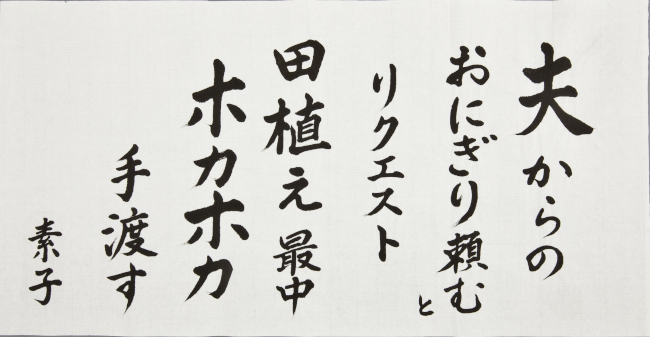 夫からの
おにぎり頼むと
リクエスト
田植え最中
ホカホカ
手渡す
素子